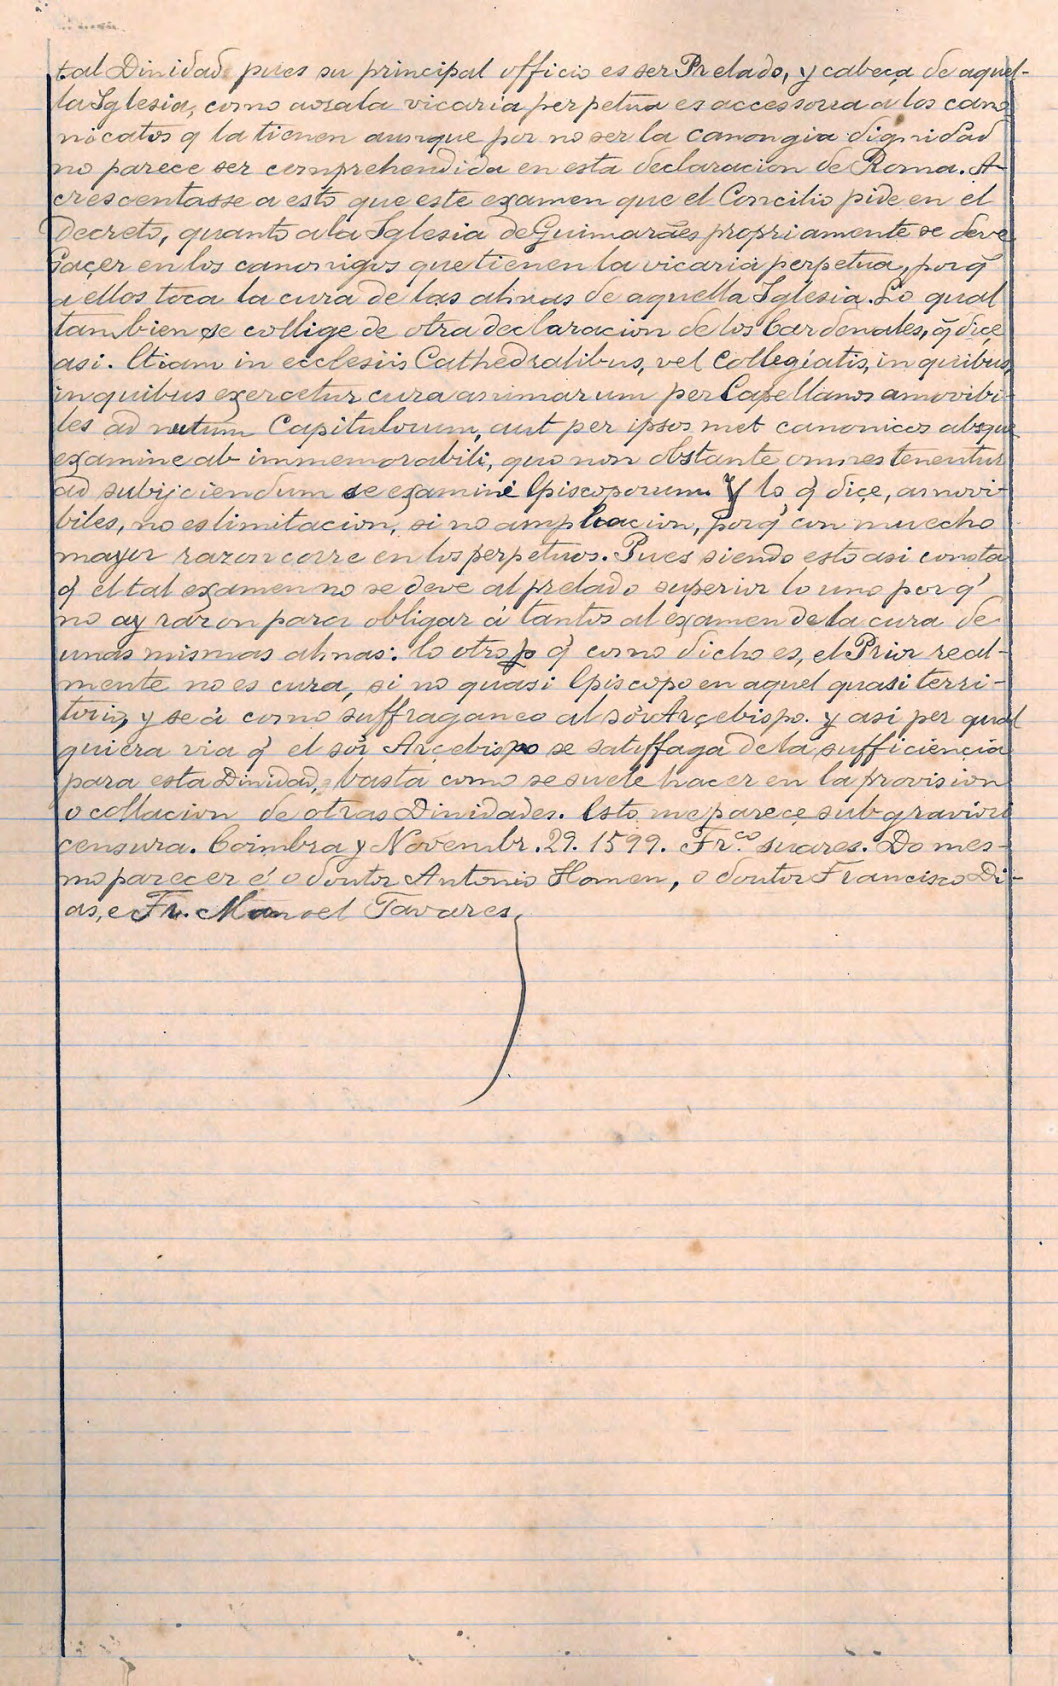 tal Dinidad pues su principal officio es ser Prelado, y cabeça de aquel-
la Iglesia, como aora la vicaria perpetua es accessorea a los cano
nicatos q la tienen aunque por no ser la canongia dignidad
no parece ser comprehendida en esta declaracion de Roma. A-
crescentasse a esto que este examen que el Concilio pide en el
Decreto, quanto a la Iglesia de Guimarães propriamente se deve
haçer en los canonigos que tienen la vicaria perpetua, porq̃
a ellos toca la cura de las almas de aquella Iglesia. Lo qual
tambien se collige de otra declaracion de los Cardenales, q̃ diçe
asi. Etiam in ecclesiis Cathedralibus, vel Collegiatis, in quibus,
in quibus exercetur cura animarum per Capellanos amovibi-
les ad nutum Capitulorum, aut per ipsos met canonicos absque
examine ab immemorabili, quo non obstante omnes tenentur
ad subijciendum se examine Episcoporum. Y lo q̃ diçe, amovi-
biles, no es limitacion, si no ampliacion, porq̃ con muecho
mayor razon corre en los perpetuos. Pues siendo esto asi consta
q̃ el tal examen no se deve al prelado superior lo uno por q̃
no ay razon para obligar á tantos al examen de la cura de
unas mismas almas: lo otro p q̃ como dicho es, el Prior real-
mente no es cura, si no quasi Episcopo en aquel quasi terri-
torio, y se á como suffraganeo al sõr Arçebispo. y asi per qual
quiera via q̃ el sõr Arçebispo se satiffaga de la sufficiençia
para esta Dinidad, basta como se suele hacer en la provision
o collacion de otras Dinidades. Esto me pareçe sub graviori
censura. Coimbra y Novembr. 29. 1599. Fr.co suares. Do mes-
mo parecer é o doutor Antonio Homen, o doutor Francisco Di-
as, e Fr. Manoel Tavares,